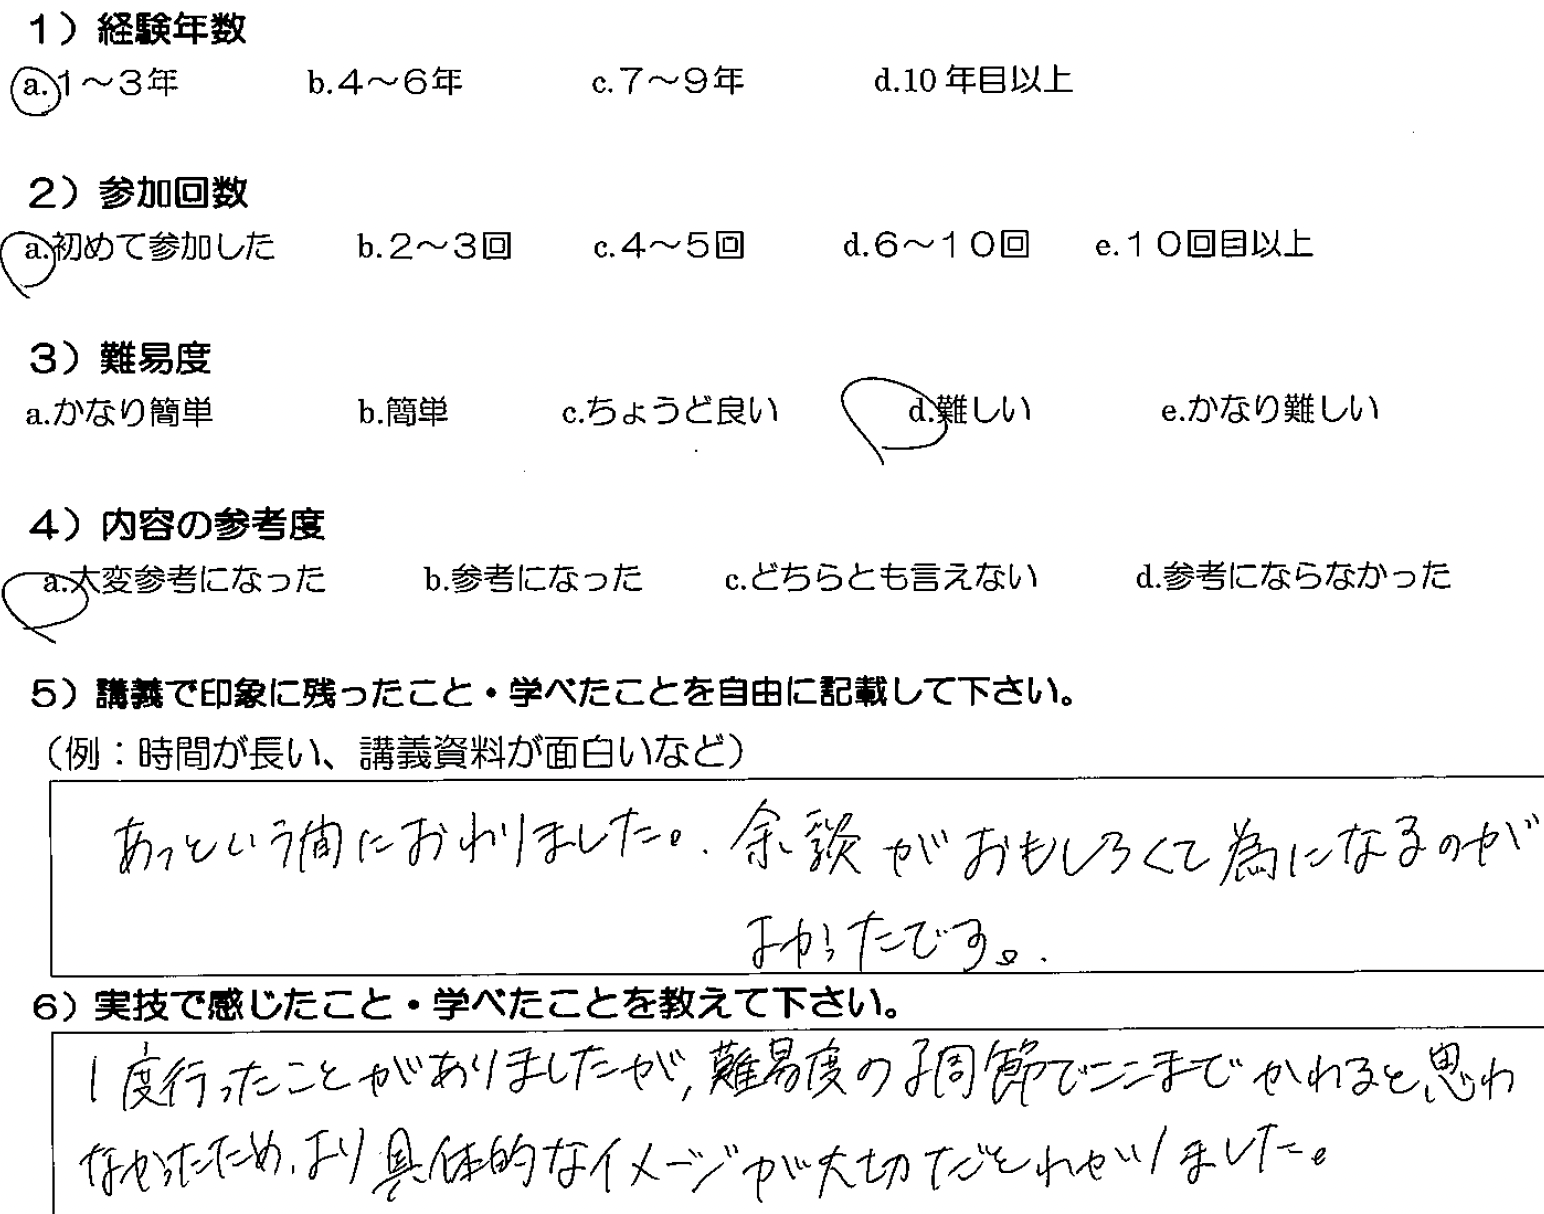 1）経験年数
a.1～3年 b.4～6年 c.7～9年 d.10年目以上
2）参加回数
a.初めて参加した b.2～3回 c.4～5回 d.6～10回 e.10回目以上
3）難易度
a.かなり簡単 b.簡単 c.ちょうど良い d.難しい e.かなり難しい
4）内容の参考度
a.大変参考になった b.参考になった c.どちらとも言えない d.参考にならなかった
5）講義で印象に残ったこと・学べたことを自由に記載して下さい。
（例：時間が長い、講義資料が面白いなど）
あっという間におわりました。余談がおもしろくて為になるのが
よかったです。
6）実技で感じたこと・学べたことを教えて下さい。
1度行ったことがありましたが、難易度の調節でここまでかわると思わ
なかったため、より具体的なイメージが大切だとわかりました。